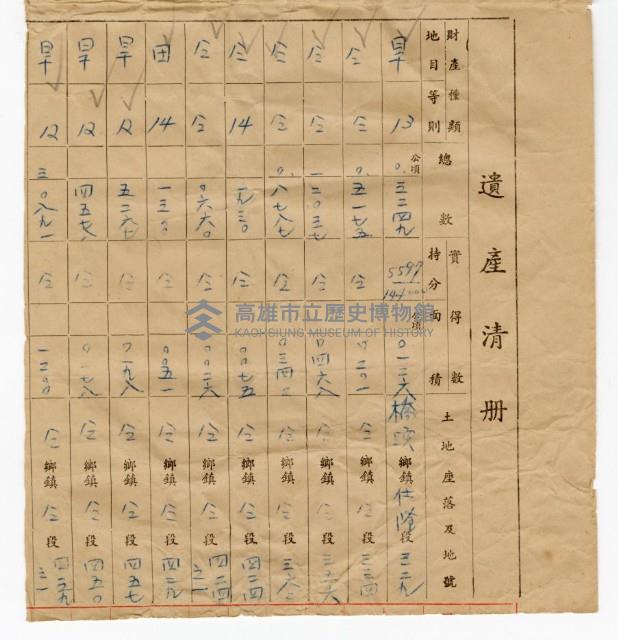 遺產清册
財產種類 地目等則
總數
實得數 持分面積
土地座落及地號
旱 13 公頃 0.三二四九 5597 公頃 0一二六 橋頭鄉鎮仕隆段三二九
仝 仝 0.五一七五 仝 0二0一 仝鄉鎮仝段三三四
仝 仝 一二0三七 仝 0四六八 仝鄉鎮仝段
仝 仝 0.八七八七 仝 0三四 仝鄉鎮仝段
仝 14 一九三0 仝 00七五 仝鄉鎮仝段四二四
仝 仝 0六六0 仝 00二六 仝鄉鎮仝段四二四之一
田 14 一三一0 仝 00五一 仝鄉鎮仝段四二九
旱 12 五二六七 仝 0一九八 仝鄉鎮仝段四五七
旱 12 四五七 仝 0一七八 仝鄉鎮仝段四五0
旱 12 三0八九一 仝 一二00 仝鄉鎮仝段四二九
高雄市立歷史博物館
KAOHSIUNG MUSEUM OF HISTORY